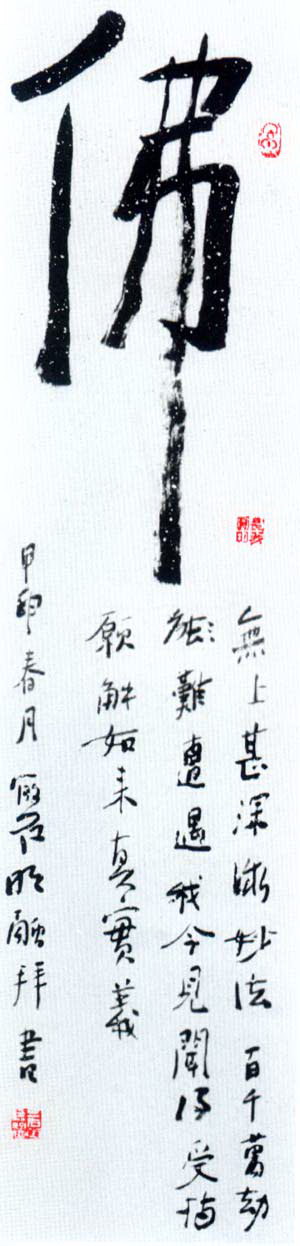 佛
無上甚深微妙法百千萬劫
難遭遇我今見聞得受持
願解如来真實義
甲申春月 明融拜書